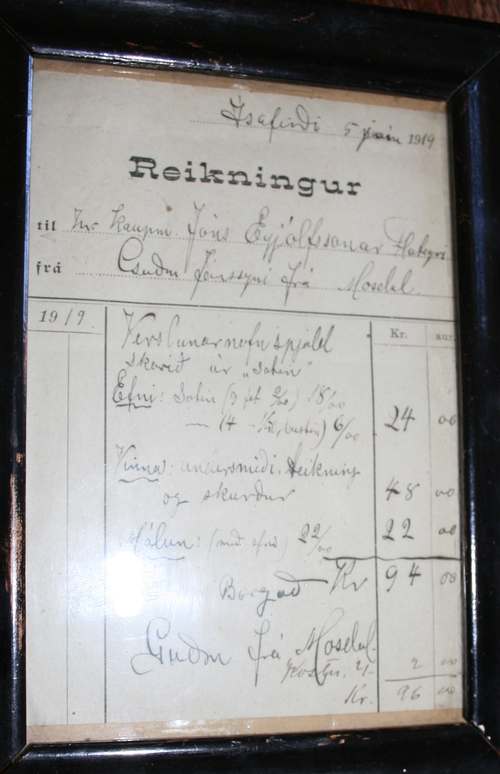 Isafirði 5 júni 1919
Reikningur
til Hr. Kaupm. Jóns Eyjólfssonar Flateyri
frá Guðm Jónssyni frá Mosdal.
Kr. aur.
1919. Verslunarnafnspjald
skorið úr "Saten"
Efni: Saten 18/00
6/00 24 00
Vinna: Teikning
og skurður 48 00
Málun: (með efni) 22/00 22 00
Borgað Kr 94 00
Guðm frá Mosdal.
2 00
Kr. 96 00